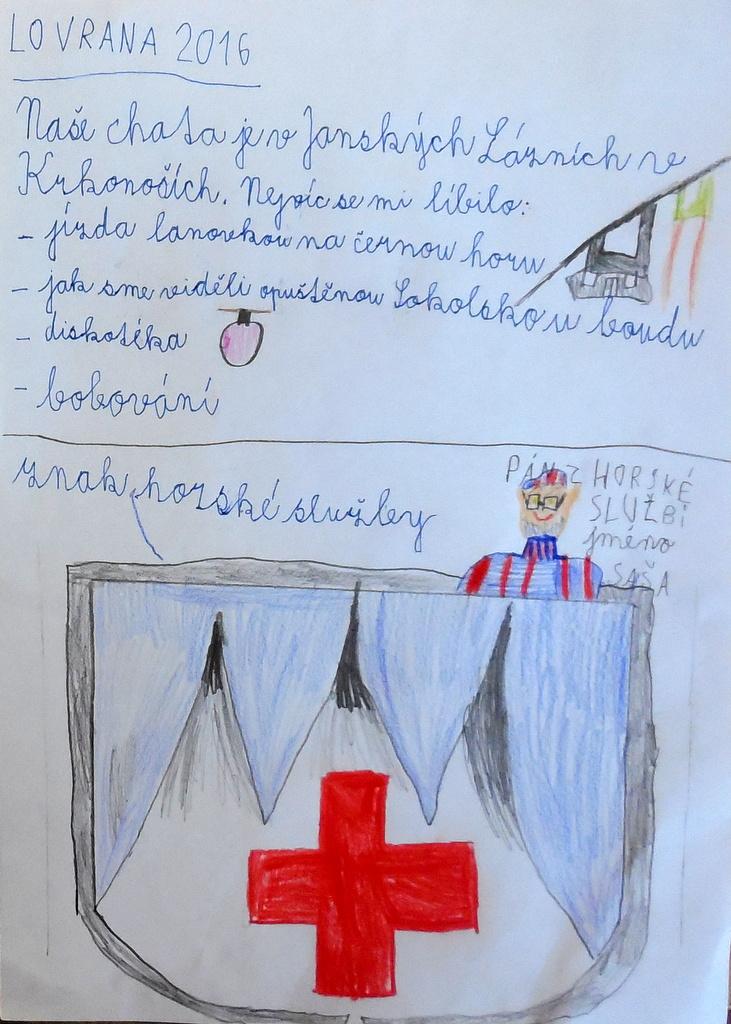 LOVRANA 2016
Naše chata je v Janských Lázních v
Krkonoších. Nejvíc se mi líbilo:
- jízda lanovkou na černou horu
- jak sme viděli opuštěnou Sokolskou boudu
- diskotéka
- bobování
znak horské služby
PÁN Z HORSKÉ
SLUŽBI
jméno
SAŠA